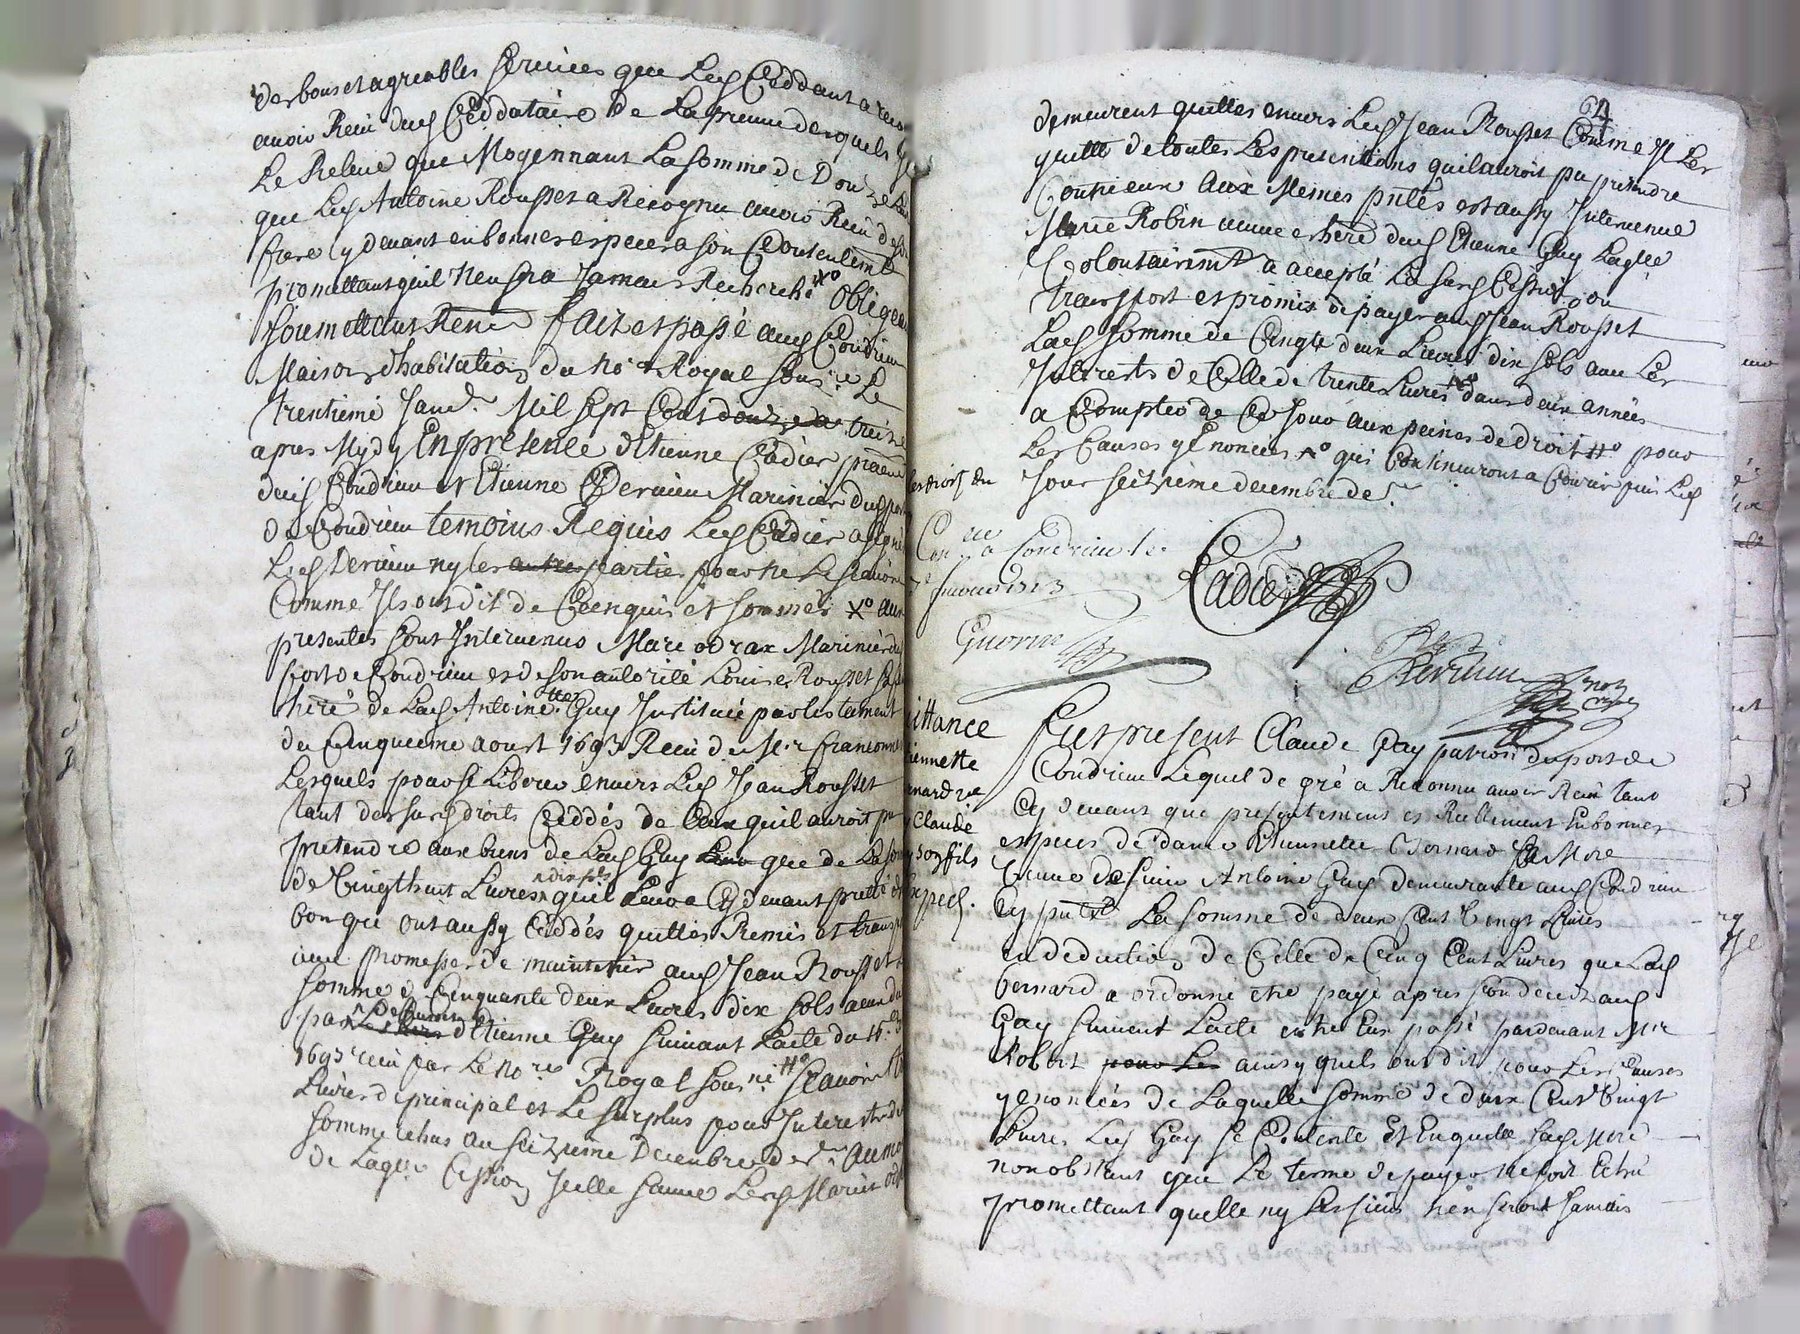 des bons et agreables services que Led Ceddant a reco
avoir Receu dud Ceddataire de La preuve desquels Il
Le Releve que Moyennant La somme de Douze Liv
que Led Antoine Rousset a Recognu avoir Receu de son
frere cy devant en bonnes especes a son Contentemt
promettant quil n'en sera Jamais Recherché Xo obligeant
soumettant Renon fait et passé aud Condrieu
Maison d'habitation du no.re Royal sous.né Le
trentieme Janv.r Mil sept Cent douze treize
apres Mydy En presence d'Etienne Cadier praticien
dud Condrieu et Etienne Dervieu Marinier du port
de Condrieu temoins Requis Led Cadier a signé
Led Dervieu ny les autres parties pour ne Le sçavoir
Comme Ils ont dit de Ce enquis et sommés Xo aux
presentes sont Intervenus Marc odrax Marinier du
port de Condrieu et de son autorité Louise Rousset sa
here de Lad Antoinette Guy Instituée par testament
du Cinquieme aoust 1693 Receu du Me.r francon
Lesquels pour se Liberer envers Led Jean Rousset
tant des susd droits Ceddés de Ceux quil auroit pu
pretendre aux biens de Lad Guy que de La somme
de vingt huit Livres dix sols quil Leur a Cy devant presté de
bon gré ont aussy Ceddés quittés Remis et transp
avec promesse de maintenir aud Jean Rousset
somme de Cinquante deux Livres dix sols a eux du
par d'Etienne Guy suivant Lacte du 4.
1693 receu par Le no.re Royal sous.né #o sçavoir
Livres de principal et Le surplus pour Interests de
somme echus au seizieme Decembre der.r au moyen
de Laq.lle Cession Icelle somme Lesd Mariés od
64
demeurent quittes envers Led Jean Rousset Comme Il Les
quitte de toutes Les pretentions quil auroit pu pretendre
Contr'eux aux Memes pntes est aussy Intervenue
Marie Robin veuve et here dud Etienne Guy Laqlle
volontairemt a accepté La susd Cession ou
transport et promis de payer aud Jean Rousset
Lad somme de Cinqte deux Livres dix sols avec Les
Interests de Celle de trente Livres Xo dans deux années
a Compter de Ce Jour aux peines de droit #o pour
Les Causes y Enoncées Xo qui Continueront a Courir puis Led
Jour seizieme decembre de.r
Con.lé a Condrieu le
Janvier 1713
Cadier
Guorne
Dervieu
not
roy
ittance
iennette
nard ve
Claude
son fils
exped.
fut present Claude Gay patron du port de
Condrieu Lequel de gré a Reconnu avoir Receu tant
Cy devant que presentement et Reellement En bonnes
especes de dame Etiennette Bernard sa Mere
veuve de sieur Antoine Gay demeurante aud Condrieu
Cy pnte La somme de deux Cent Vingt Livres
en deduction de Celle de Cinq Cent Livres que Lad
bernard a ordonné etre payé apres son decez aud
Gay suivant Lacte entre Eux passé pardevant Me
Robert pour Les ainsy quils ont dit pour Les Causes
y enoncées de Laquelle somme de deux Cent Vingt
Livres Led Gay se Contente Et En quitte sad Mere
non obstant que Le terme de payer ne soit Echu
promettant quelle ny Les siens n'en seront Jamais